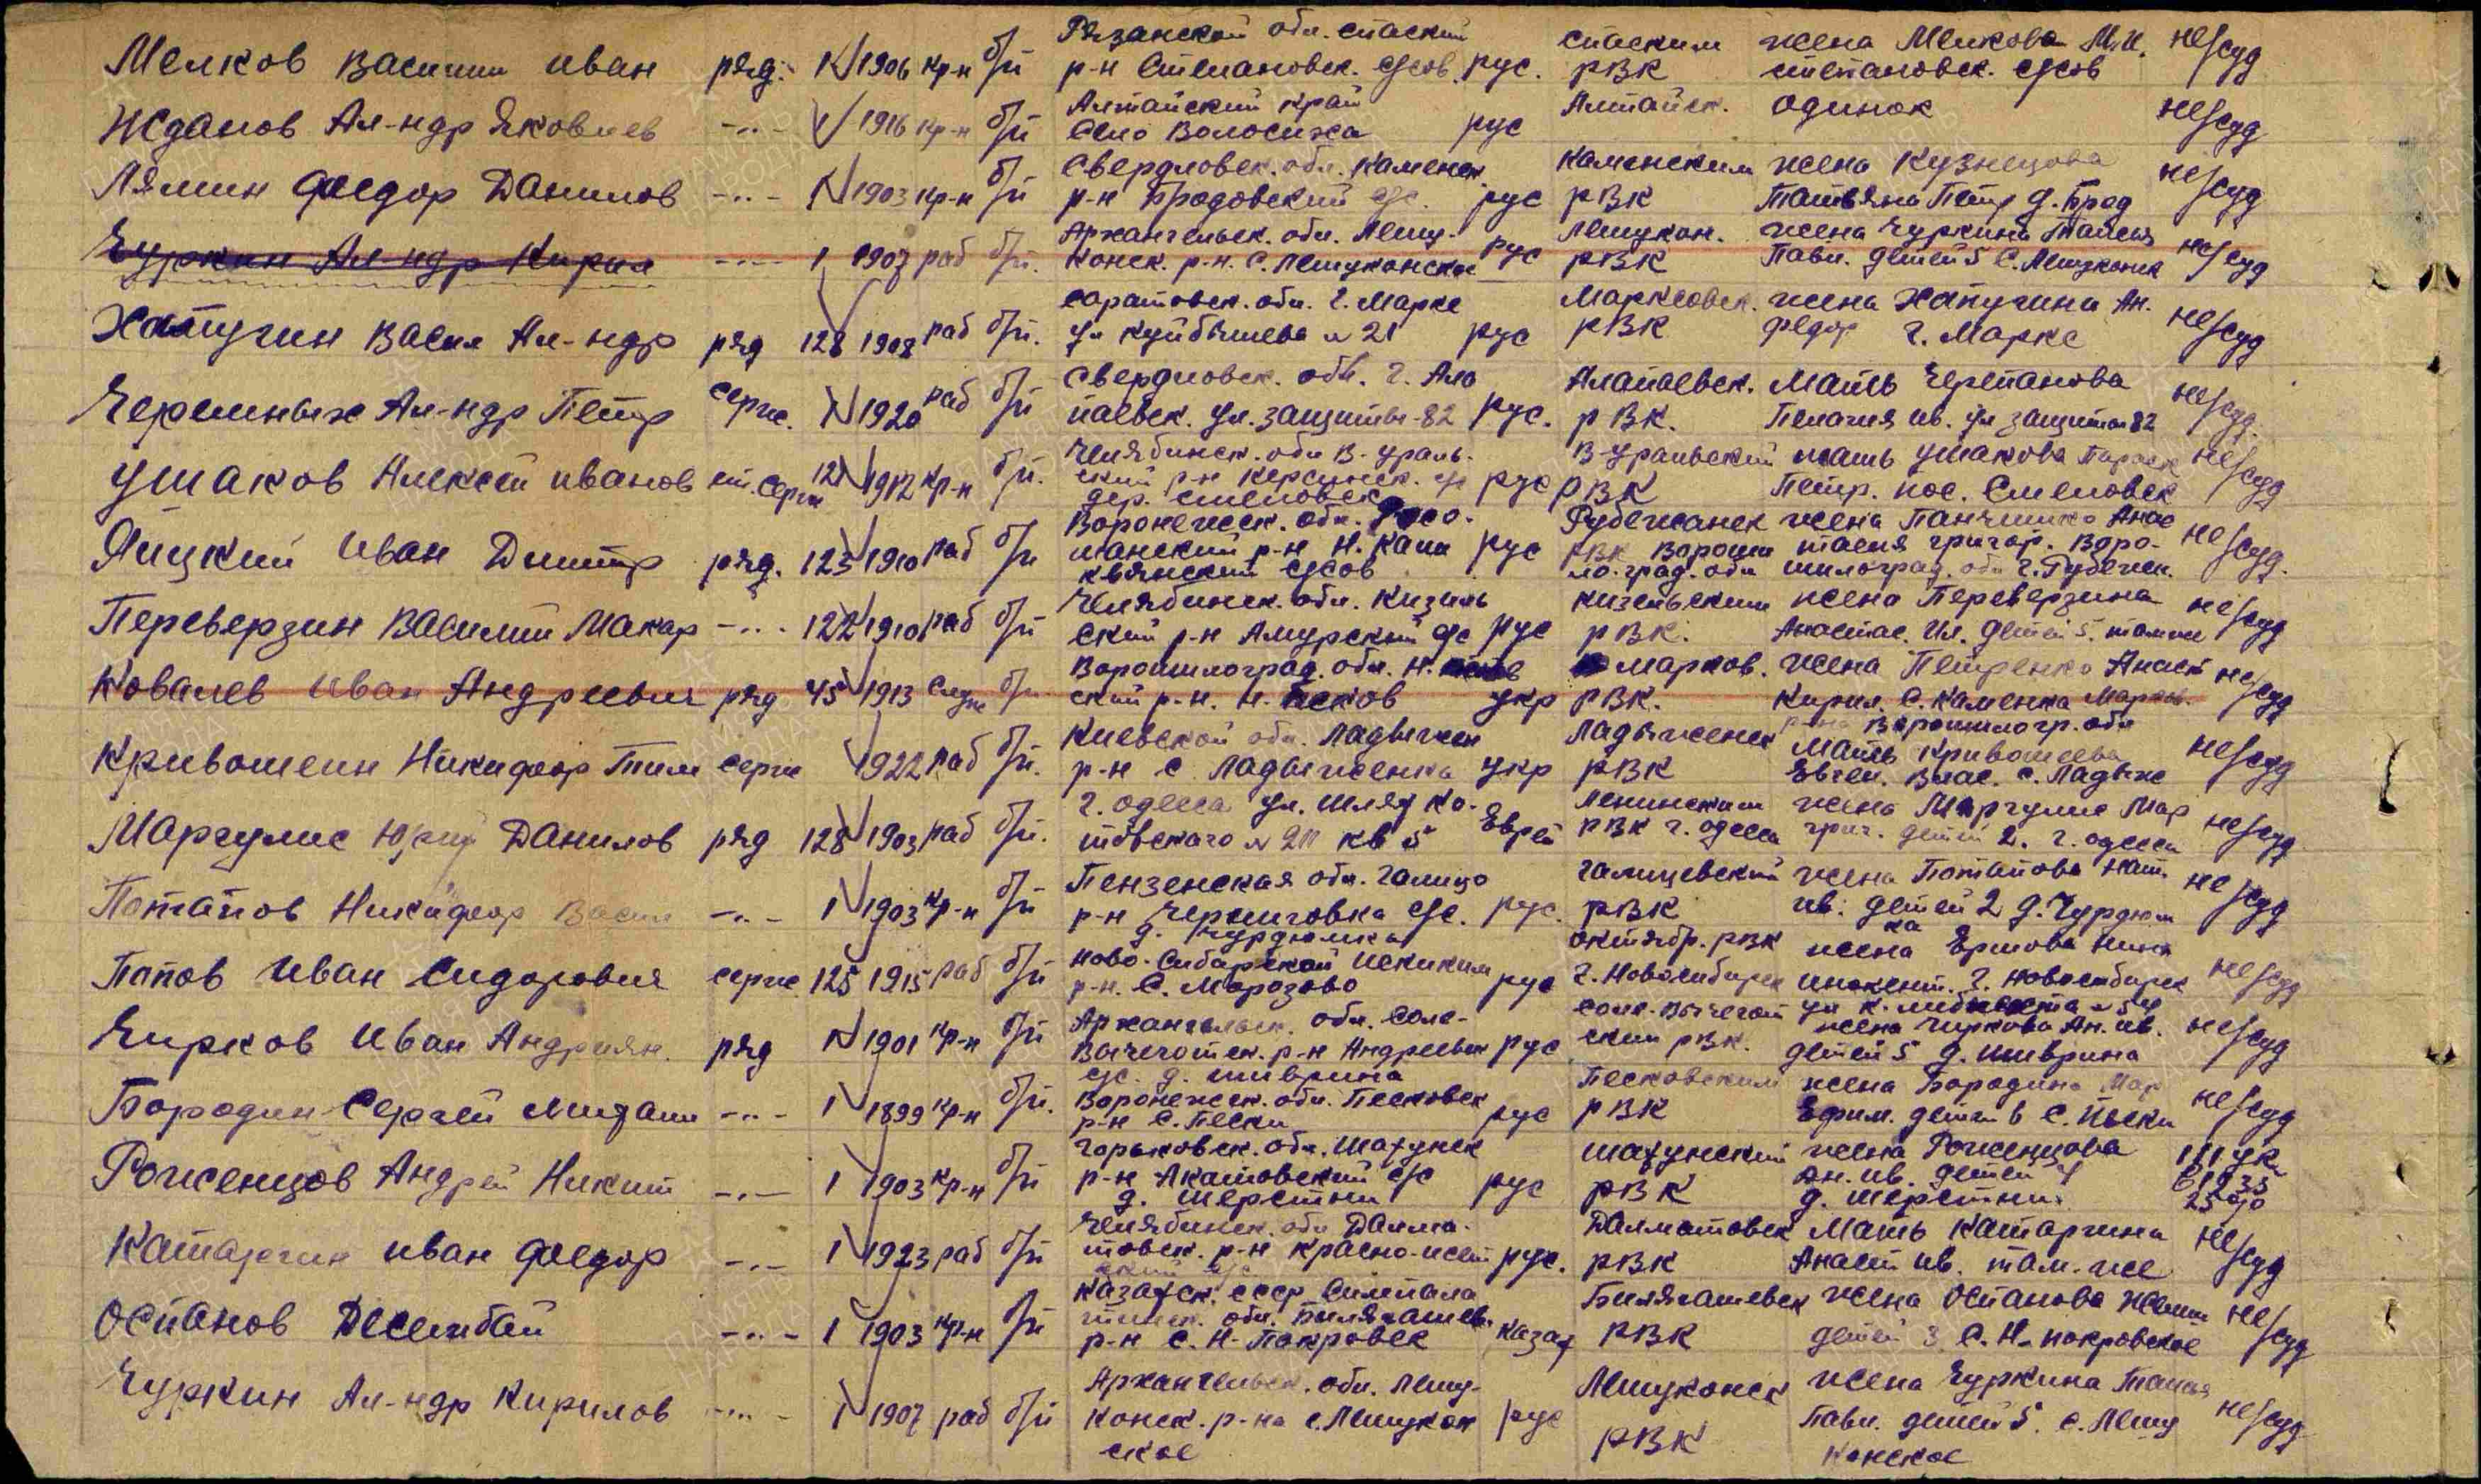 Мелков Василий Иван ряд. 1 1906 кр-н б/п Рязанской обл. Спаский р-н Степановск. с/сов. рус. Спаским РВК жена Мелкова М.И. степановск. с/сов не/суд
Жданов Ал-ндр Яковлев -"- 1916 кр-н б/п Алтайский край Село Волосиха рус Алтайск. одинок не/суд
Лямин Федор Данилов -"- 1 1903 кр-н б/п Свердловск. обл. Каменск р-н Бродовский с/с. рус Каменским РВК жена Кузнецова Татьяна Петр д. Брод не/суд
Чуркин Ал-ндр Кирил -"- 1 1907 раб б/п. Архангельск. обл. Лешу- конск. р-н. с. Лешуконское рус Лешукон. РВК жена Чуркина Таисия Павл. детей 5 с. Лешуконск не/суд
Хапугин Васил Ал-ндр ряд 128 1908 раб б/п. Саратовск. обл. г. Маркс ул Куйбышева № 21 рус Марксовск. РВК жена Хапугина Ан. Федор г. Маркс не/суд
Черемных Ал-ндр Петр серж. 1 1920 раб б/п Свердловск. обл. г. Ала паевск. ул. Защиты-82 рус. Алапаевск. РВК. Мать Черепанова Пелагия ив. ул Защиты 82 не/суд.
Ушаков Алексей Иванов ст. серж 121 1912 кр-н б/п. Челябинск. обл В-Ураль- ский р-н с/с дер. рус В-Уральский РВК мать Ушакова Параск Петр. пос. не/суд
Яицкий Иван Дмитр ряд. 123 1910 раб б/п Воронежск. обл. Росо- шанский р-н Н. Кали квянский с/сов рус Рубежанск РВК Вороши ло. град. обл жена Панченко Анас тасия Григор. Воро- шилоград. обл г. Рубежн. не/суд.
Переверзин Василий Макар -"- 122 1910 раб б/п Челябинск. обл. Кизиль ский р-н Амурский с/с рус Кизельским РВК. жена Переверзина Анастас. Ил. детей 5. там же не/суд
Ковалев Иван Андреевич ряд 45 1913 служ б/п Ворошилоград. обл. Н. ский р-н. Н. Псков укр Марков. РВК. жена Петренко Анаст Кирил. с. Каменка Марков. р-на Ворошилогр. обл не/суд
Кривошеин Никифор Тим серж 1922 раб б/п. Киевской обл. Ладыжен р-н с Ладыженка укр Ладыженск РВК Мать Кривошеева Евген. Влас. с. Ладыж не/суд
Маргулис Юрий Данилов ряд 128 1903 раб б/п. г. Одесса ул. Шлях Ко- товского № 2 кв 5 Еврей Ленинским РВК г. Одесса жена Маргулис Мар григ. детей 2. г. Одесса не/суд
Потапов Никифор Васил -"- 1 1903 кр-н б/п Пензенская обл. Галицо р-н Черниговка с/с. д. Чурдюмка рус. Галицевский РВК жена Потапова Нат. ив. детей 2 д. Чурдюм ка не/суд
Попов Иван Сидорович серж. 125 1915 раб б/п Ново-Сибирской Искитим р-н. с. Морозово рус Октябр. РВК г. Новосибирск жена Ершова Нина инокент. г. Новосибирск ул К. Либкнехта № 54 не/суд
Чирков Иван Андриян. ряд 1 1901 кр-н б/п Архангельск. обл. Соль- Вычеготск. р-н Андреевск с/с. д. Шиврина рус Соль-Вычегод ским РВК. жена Чиркова Ан. ив. детей 5 д. Шиврина не/суд
Бородин Сергей Михаил -"- 1 1899 кр-н б/п. Воронежск. обл. Песковск р-н с. Пески рус Песковским РВК жена Бородина Мар Ефим. детей 6 с. Пески не/суд
Роженцов Андрей Никит -"- 1 1903 кр-н б/п Горьковск. обл. Шахунск р-н Акатовский с/с д. Шерстни рус Шахунский РВК жена Роженцова Ан. ив. детей 4 д. Шерстни. 111 ук. в 1935
Катаргин Иван Федор -"- 1 1923 раб б/п Челябинск. обл Далма- товск. р-н Красно-исет ский с/с рус. Далматовск РВК Мать Катаргина Анаст ив. там-же не/суд
Оспанов Десембай -"- 1 1903 кр-н б/п Казахск. ССР Симпала тинск. обл. Билягашевск. р-н с. Н-Покровск казах Билягашевск РВК жена Оспанова детей 3 с. Н. Покровское не/суд
Чуркин Ал-ндр Кирилов -"- 1 1907 раб б/п Архангельск. обл. Лешу- конск. р-на с. Лешукон ское рус Лешуконск РВК жена Чуркина Таисья Павл. детей 5. с. Лешу конское не/суд